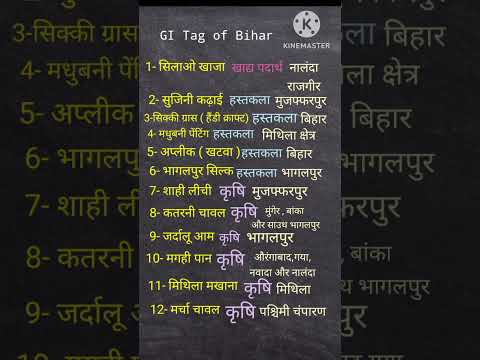 GI Tag of Bihar
KINEMASTER
1- सिलाओ खाजा खाद्य पदार्थ नालंदा
राजगीर
2- सुजिनी कढ़ाई हस्तकला मुजफ्फरपुर
3-सिक्की ग्रास ( हैंडी क्राफ्ट) हस्तकला बिहार
4- मधुबनी पेंटिंग हस्तकला मिथिला क्षेत्र
5- अप्लीक ( खटवा ) हस्तकला बिहार
6- भागलपुर सिल्क हस्तकला भागलपुर
7- शाही लीची कृषि मुजफ्फरपुर
8- कतरनी चावल कृषि मुंगेर , बांका
और साउथ भागलपुर
9- जर्दालू आम कृषि भागलपुर
10- मगही पान कृषि औरंगाबाद,गया,
नवादा और नालंदा
11- मिथिला मखाना कृषि मिथिला
12- मर्चा चावल कृषि पश्चिमी चंपारण
3-सिक्की ग्रास
4- मधुबनी पेंटिंग
5- अप्लीक
6- भागलपुर
7- शाही लीची
8- कतरनी
9- जर्दालू आम
बिहार
क्षेत्र
बिहार
भागलपुर
मुजफ्फरपुर
बांका
भागलपुर